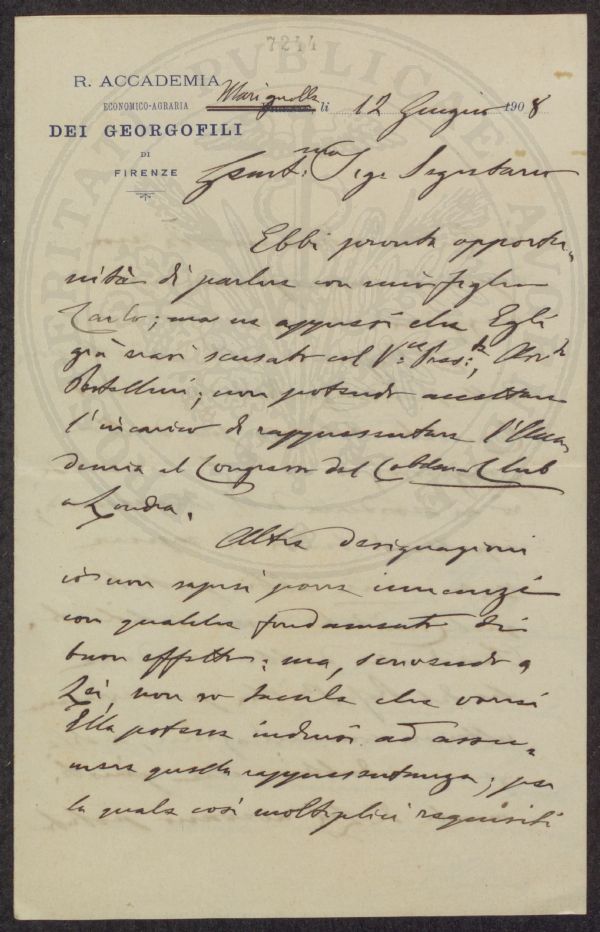 7244
R. ACCADEMIA
ECONOMICO-AGRARIA
DEI GEORGOFILI
DI
FIRENZE
Marignolle li 12 Giugno 1908
Gent.mo Sigr Segretario
Ebbi pronta opportu„
nità di parlare con mio figlio
Carlo; ma ne appresi che Egli
già erasi scusato col V.ce Pres.te,
Pestellini; non potendo accettare
l'incarico di rappresentare l'Acca„
demia al Congresso del Cobden Club
a Londra.
Altre designazioni
io non saprei porre innanzi
con qualche fondamento di
buon effetto; ma, scrivendo a
Lei, non so tacerle che vorrei
Ella potesse indursi ad assu„
mere quella rappresentanza; per
la quale così molteplici requisiti